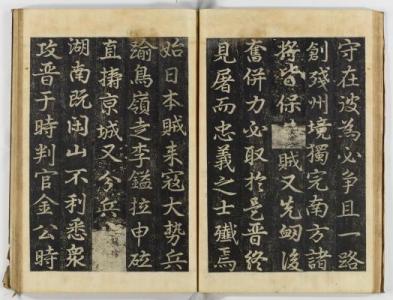 守在彼為必争且一路
創殘州境獨完南方諸
将皆保賊又先衂後
奮併力必取於是晉終
見屠而忠義之士殲焉
始日本賊来寇大勢兵
踰鳥嶺走李鎰拉申砬
直擣京城又分兵
湖南旣閑山不利悉衆
攻晉于時判官金公時